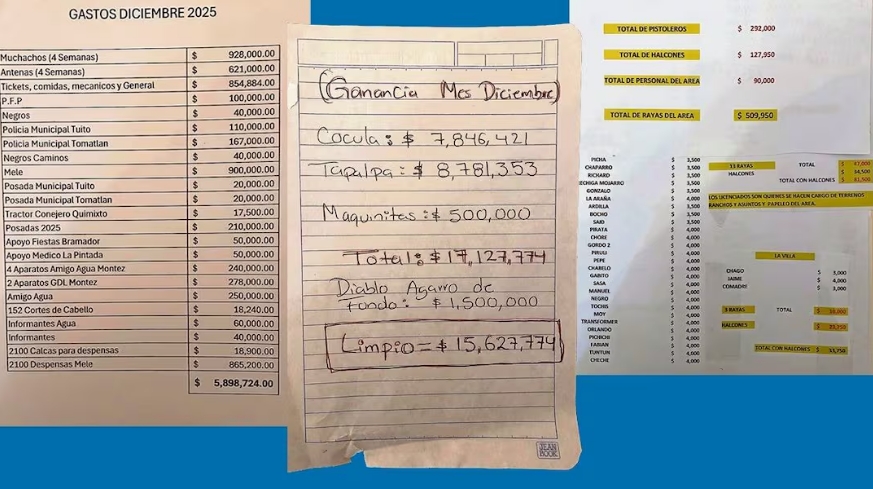 GASTOS DICIEMBRE 2025
Muchachos (4 Semanas) $ 928,000.00
Antenas (4 Semanas) $ 621,000.00
Tickets, comidas, mecanicos y General $ 854,884.00
P.F.P $ 100,000.00
Negros $ 40,000.00
Policia Municipal Tuito $ 110,000.00
Policia Municipal Tomatlan $ 167,000.00
Negros Caminos $ 40,000.00
Mele $ 900,000.00
Posada Municipal Tuito $ 20,000.00
Posada Municipal Tomatlan $ 20,000.00
Tractor Conejero Quimixto $ 17,500.00
Posadas 2025 $ 210,000.00
Apoyo Fiestas Bramador $ 50,000.00
Apoyo Medico La Pintada $ 50,000.00
4 Aparatos Amigo Agua Montez $ 240,000.00
2 Aparatos GDL Montez $ 278,000.00
Amigo Agua $ 250,000.00
152 Cortes de Cabello $ 18,240.00
Informantes Agua $ 60,000.00
Informantes $ 40,000.00
2100 Calcas para despensas $ 18,900.00
2100 Despensas Mele $ 865,200.00
$ 5,898,724.00
(Ganancia Mes Diciembre)
Cocula: $ 7,846,421
Tapalpa: $ 8,781,353
Maquinitas: $ 500,000
Total: $ 17,127,774
Diablo Agarro de
fondo: $ 1,500,000
Limpio = $ 15,627,774
JEAN BOOK
TOTAL DE PISTOLEROS $ 292,000
TOTAL DE HALCONES $ 127,950
TOTAL DE PERSONAL DEL AREA $ 90,000
TOTAL DE RAYAS DEL AREA $ 509,950
PICHA $ 3,500
CHAPARRO $ 3,500
RICHARD $ 3,500
$ 3,500
GONZALO $ 3,500
LA ARAÑA $ 4,000
ARDILLA $ 3,500
BOCHO $ 3,500
SAID $ 3,500
PIRATA $ 4,000
CHORE $ 4,000
GORDO 2 $ 4,000
PIRULI $ 4,000
PEPE $ 4,000
CHARELO $ 4,000
GABITO $ 4,000
SASA $ 4,000
MANUEL $ 4,000
NEGRO $ 4,000
TOCHIS $ 4,000
MOY $ 4,000
TRANSFORMER $ 4,000
ORLANDO $ 4,000
PICHICHI $ 4,000
FABIAN $ 4,000
TUNTUN $ 4,000
CHECHE $ 4,000
13 RAYAS TOTAL $ 47,000
HALCONES $ 34,500
TOTAL CON HALCONES $ 81,500
LOS LICENCIADOS SON QUIENES SE HACEN CARGO DE TERRENOS
RANCHOS Y ASUNTOS Y PAPELEO DEL AREA.
LA VILLA
CHAGO $ 3,000
JAIME $ 4,000
COMADRE $ 3,000
3 RAYAS TOTAL $
HALCONES $
TOTAL CON HALCONES $